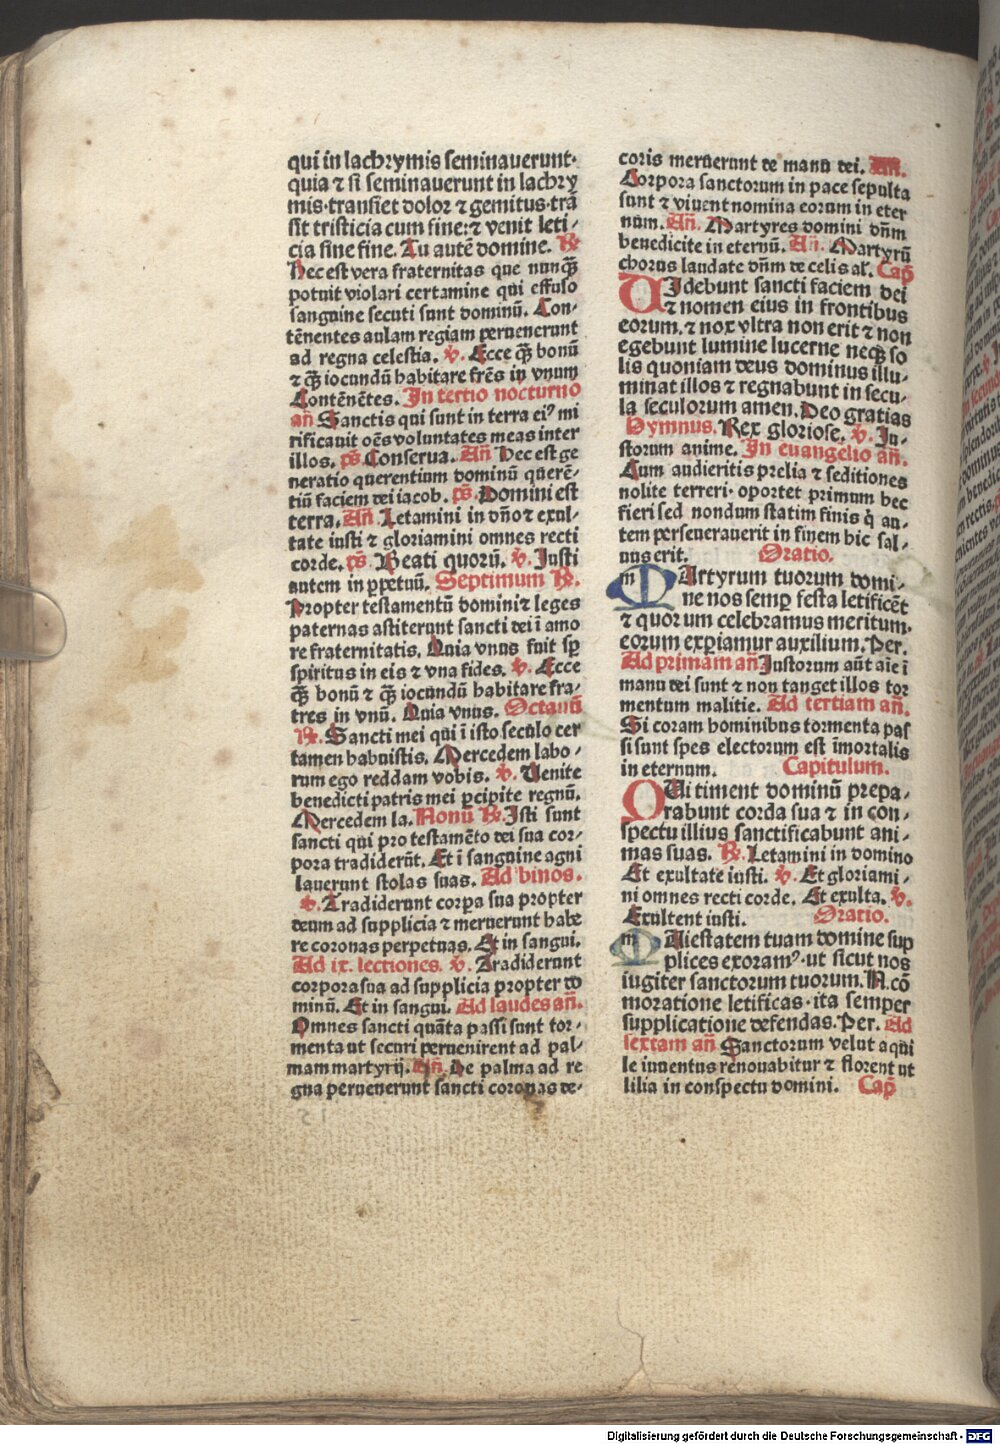 qui in lachrymis seminauerunt·
quia ⁊ si seminauerunt in lachry
mis·transiet dolor ⁊ gemitus·trā
sit tristicia cum fine:⁊ venit leti-
cia sine fine. Tu autē domine. ℟
Hec est vera fraternitas que nunq̄
potuit violari certamine qui effuso
sanguine secuti sunt dominū. Con-
tēnentes aulam regiam peruenerunt
ad regna celestia. ℣. Ecce q̄ bonū
⁊ q̄ iocundū habitare frēs in vnum
Contēnētes. In tertio nocturno
an̄ Sanctis qui sunt in terra eiꝰ mi
rificauit oēs voluntates meas inter
illos. ps̄ Conserua. An̄ Hec est ge
neratio querentium dominū querē-
tiū faciem dei iacob. ps̄. Domini est
terra. An̄. Letamini in dn̄o ⁊ exul-
tate iusti ⁊ gloriamini omnes recti
corde. ps̄. Beati quorū. ℣. Justi
autem in ꝑpetuū. Septimum ℟.
Propter testamentū domini ⁊ leges
paternas astiterunt sancti dei ī amo
re fraternitatis. Quia vnus fuit sp̄
spiritus in eis ⁊ vna fides. ℣. Ecce
q̄ bonū ⁊ q̄ iocundū habitare fra-
tres in vnū. Quia vnus. Octauū
℟. Sancti mei qui ī isto seculo cer
tamen habuistis. Mercedem labo-
rum ego reddam vobis. ℣. Uenite
benedicti patris mei ꝑcipite regnū.
Mercedem la. Nonū ℟. Isti sunt
sancti qui pro testamēto dei sua cor-
pora tradiderūt. Et ī sanguine agni
lauerunt stolas suas. Ad binos.
℣. Tradiderunt corꝑa sua propter
deum ad supplicia ⁊ meruerunt habe
re coronas perpetuas. Et in sangui.
Ad ix. lectiones. ℣. Tradiderunt
corpora sua ad supplicia propter do
minū. Et in sangui. Ad laudes an̄.
Omnes sancti quāta passi sunt tor-
menta ut securi peruenirent ad pal-
mam martyrij. An̄. De palma ad re
gna peruenerunt sancti coronas de-
coris meruerunt de manu dei. An̄.
Corpora sanctorum in pace sepulta
sunt ⁊ viuent nomina eorum in eter
num. An̄. Martyres domini dn̄m
benedicite in eternū. An̄. Martyrū
chorus laudate dn̄m de celis al̄. Cap̄
UIdebunt sancti faciem dei
⁊ nomen eius in frontibus
eorum. ⁊ nox vltra non erit ⁊ non
egebunt lumine lucerne neq̄ so
lis quoniam deus dominus illu-
minat illos ⁊ regnabunt in secu-
la seculorum amen. Deo gratias
Hymnus. Rex gloriose. ℣. Ju-
storum anime. In euangelio an̄.
Cum audieritis prelia ⁊ seditiones
nolite terreri· oportet primum hec
fieri sed nondum statim finis q̇ au-
tem perseuerauerit in finem hic sal-
uus erit. Oratio.
MArtyrum tuorum domi-
ne nos semꝑ festa letificēt
⁊ quorum celebramus meritum.
eorum experiamur auxilium. Per.
Ad primam an̄. Justorum aūt aīe ī
manu dei sunt ⁊ non tanget illos tor
mentum malitie. Ad tertiam an̄.
Si coram hominibus tormenta pas
si sunt spes electorum est īmortalis
in eternum. Capitulum.
QUi timent dominū prepa-
rabunt corda sua ⁊ in con-
spectu illius sanctificabunt ani-
mas suas. ℟. Letamini in domino
Et exultate iusti. ℣. Et gloriami-
ni omnes recti corde. Et exulta. ℣.
Exultent iusti. Oratio.
MAiestatem tuam domine sup
plices exoramꝰ·ut sicut nos
iugiter sanctorum tuorum. N. cō
moratione letificas·ita semper
supplicatione defendas. Per. Ad
sextam an̄ Sanctorum velut aqui
le iuuentus renouabitur ⁊ florent ut
lilia in conspectu domini. Cap̄
Digitalisierung gefördert durch die Deutsche Forschungsgemeinschaft - DFG